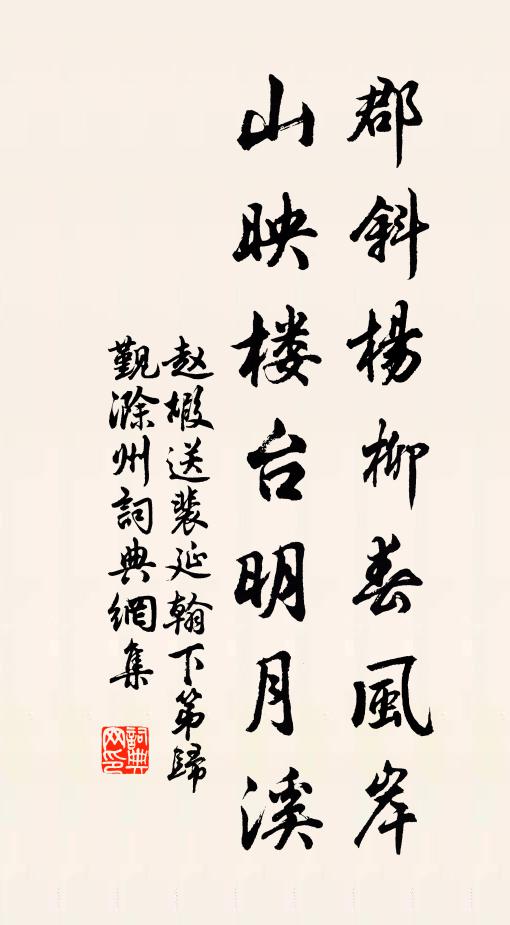 郡斜楊柳春風岸
山映楼台明月溪
赵嘏送裴延翰下第歸
觐滁州詞典網集
詞典网印